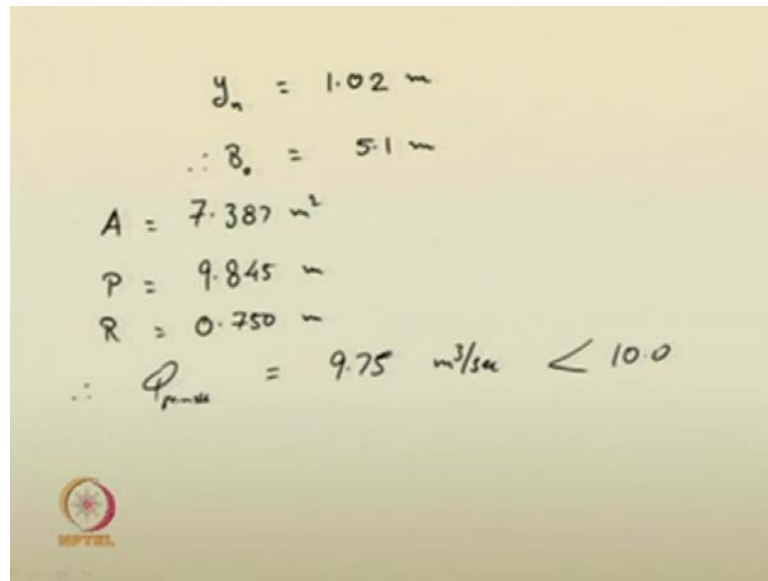 yₙ = 1.02 m
∴ B₀ = 5.1 m
A = 7.387 m²
P = 9.845 m
R = 0.750 m
∴ Q = 9.75 m³/sec < 10.0
NPTEL